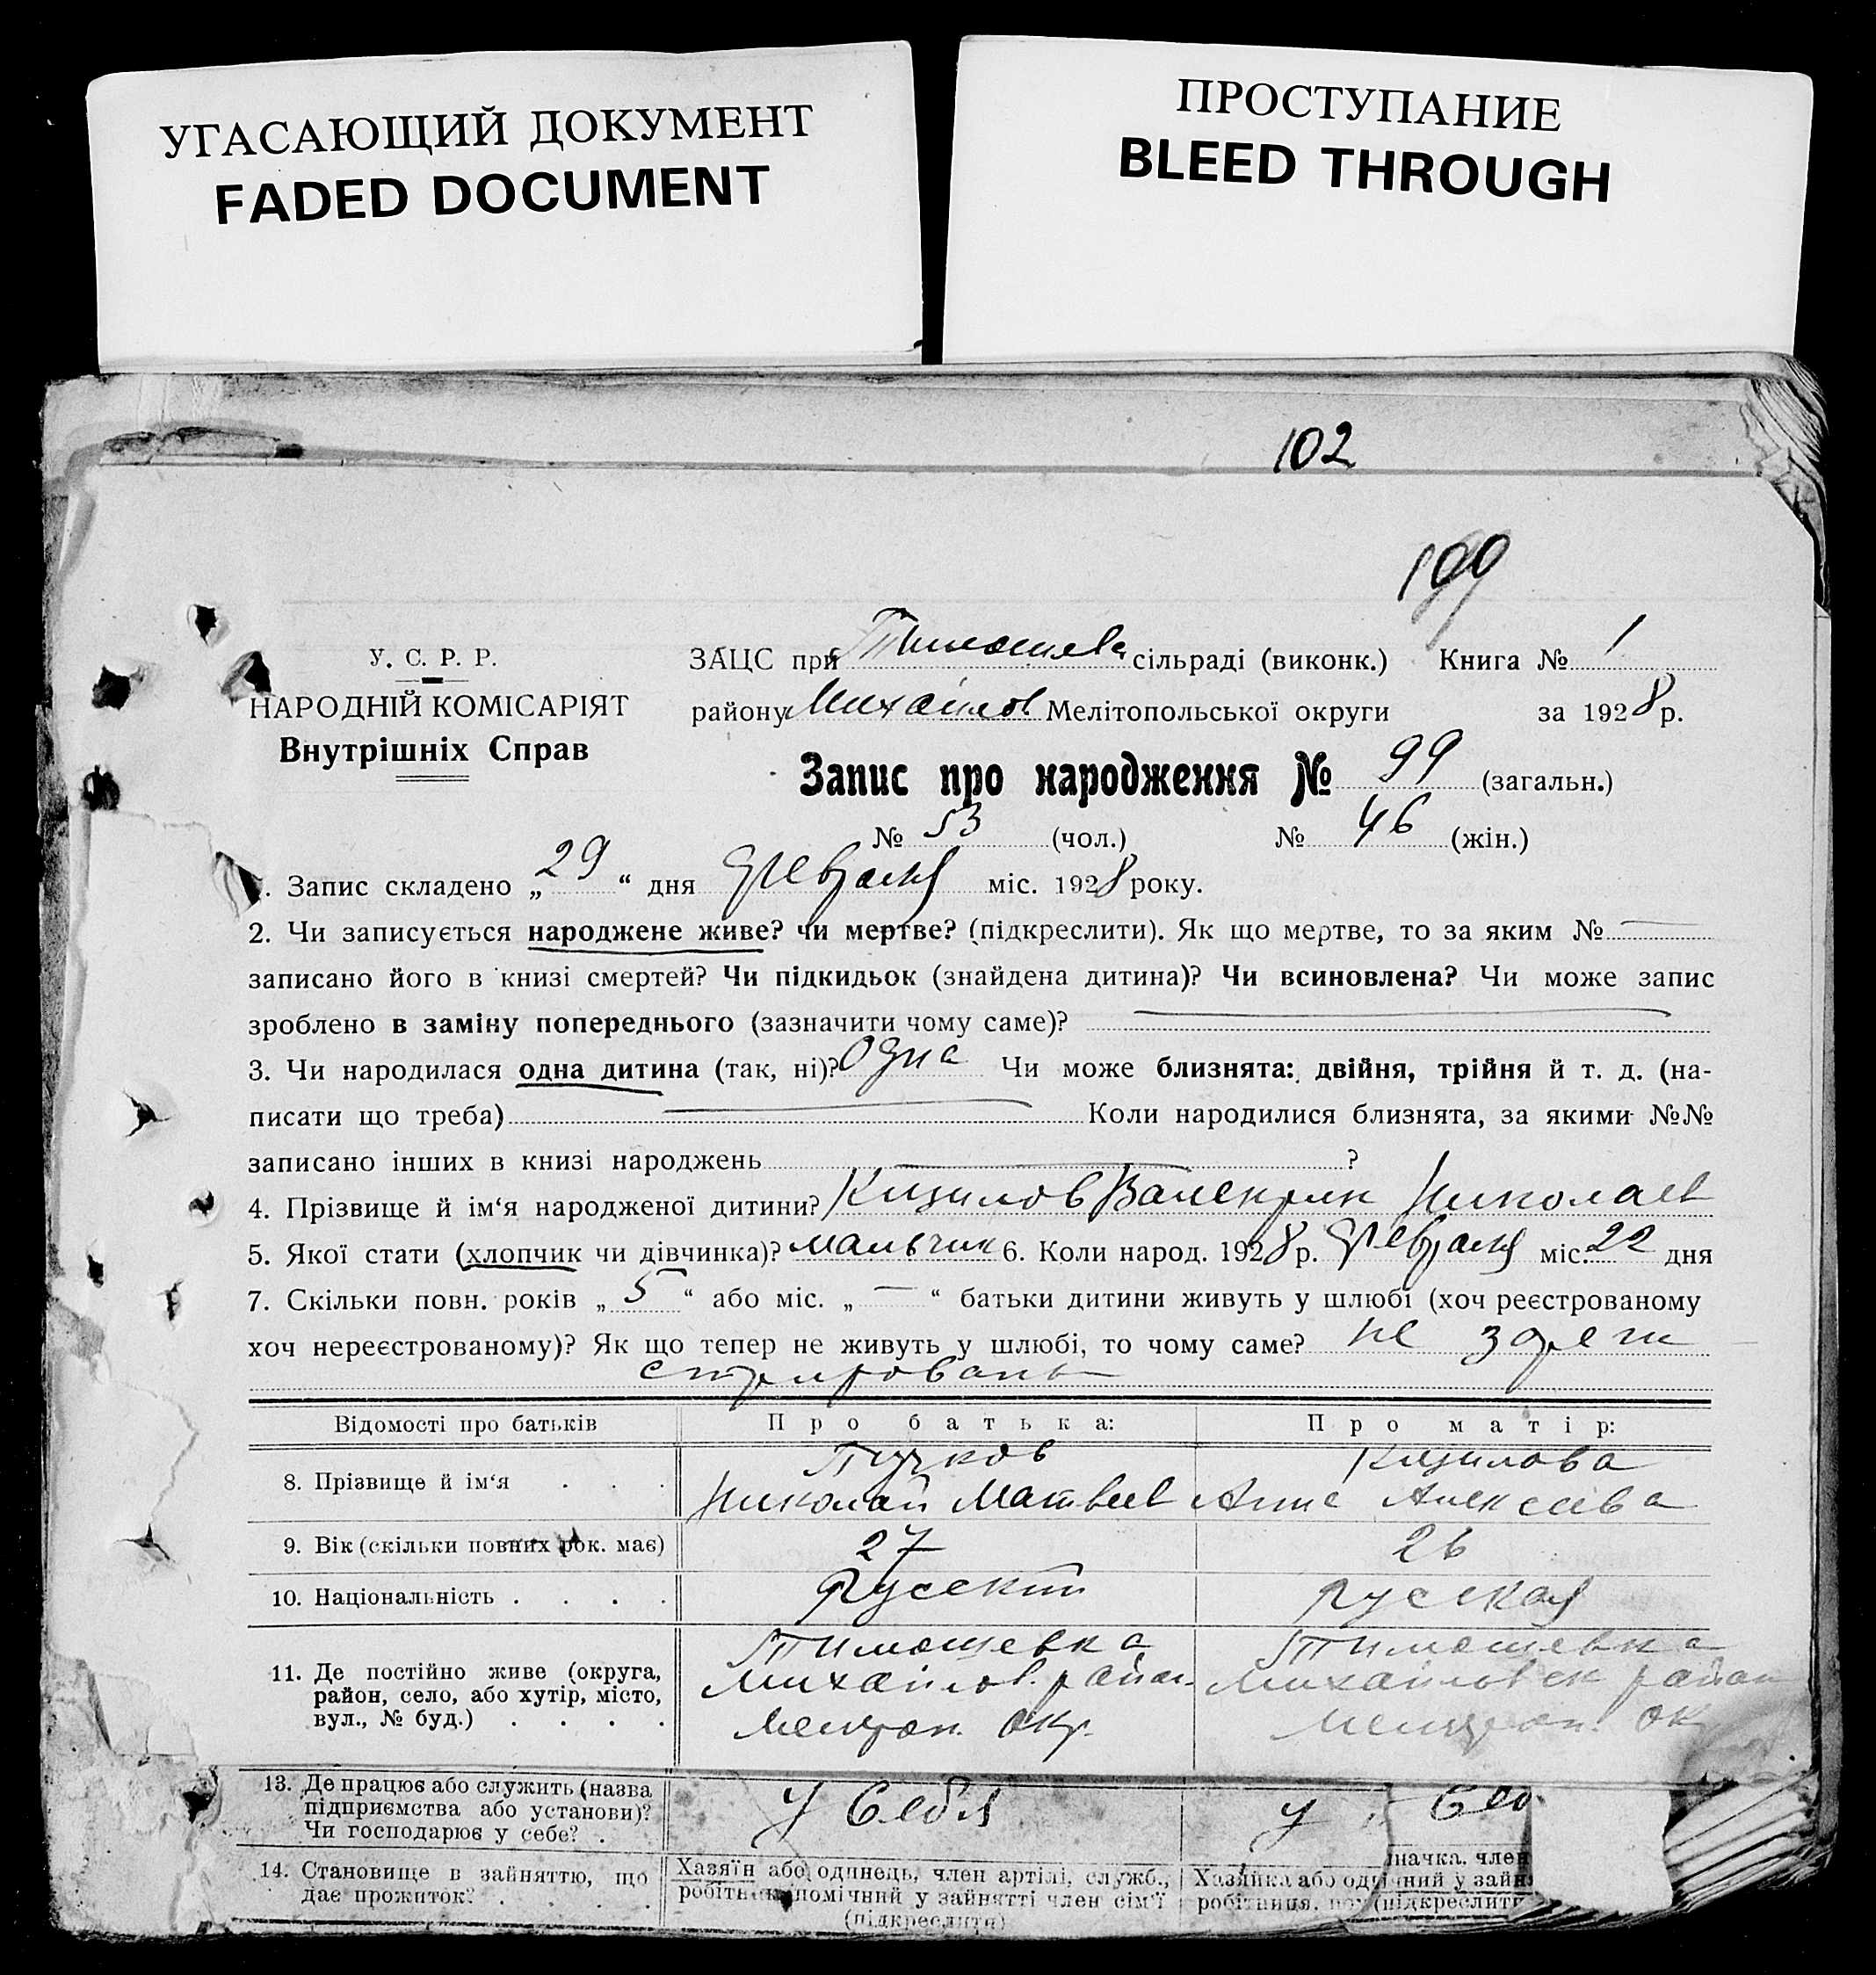 УГАСАЮЩИЙ ДОКУМЕНТ
FADED DOCUMENT
ПРОСТУПАНИЕ
BLEED THROUGH
102
У. С. Р. Р.
НАРОДНІЙ КОМІСАРІЯТ
Внутрішніх Справ
ЗАЦС при Тимошев сільраді (виконк.) Книга № 1
району Михайлов Мелітопольської округи за 1928 р.
Запис про народження № 99 (загальн.)
№ 53 (чол.) № 46 (жін.)
. Запис складено „29“ дня февраля міс. 1928 року.
2. Чи записується народжене живе? чи мертве? (підкреслити). Як що мертве, то за яким № —
записано його в книзі смертей? Чи підкидьок (знайдена дитина)? Чи всиновлена? Чи може запис
зроблено в заміну попереднього (зазначити чому саме)? —
3. Чи народилася одна дитина (так, ні)? Одна Чи може близнята: двійня, трійня й т. д. (на-
писати що треба) — Коли народилися близнята, за якими №№
записано інших в книзі народжень — ?
4. Прізвище й ім‘я народженої дитини? Кизилов Николаев
5. Якої стати (хлопчик чи дівчинка)? мальчик 6. Коли народ. 1928 р. февраля міс. 22 дня
7. Скільки повн. років „5“ або міс. „—“ батьки дитини живуть у шлюбі (хоч реєстрованому
хоч нереєстрованому)? Як що тепер не живуть у шлюбі, то чому саме? не
Відомості про батьків Про батька: Про матір:
8. Прізвище й ім‘я . . . Пучков Кизилова
Николай Матвеев Анна Алексеева
9. Вік (скільки повних рок. має) 27 26
10. Національність . . . . Русский русская
11. Де постійно живе (округа, район, село, або хутір, місто, вул., № буд.) . . . .
Тимошевка Тимошевка
Михайлов. район Михайловск район
Мелитоп. окр. Мелитоп. ок
13. Де працює або служить (назва підприємства або установи)? Чи господарює у себе? . у себя у
14. Становище в зайняттю, що дає прожиток? . . . .
Хазяїн або одинець, член артілі, служб.,
робітник, помічний у зайнятті член сім‘ї
(підкреслити)
Хазяйка або од
робітниця, по
начка, член
ічний у зайн
(підкреслити